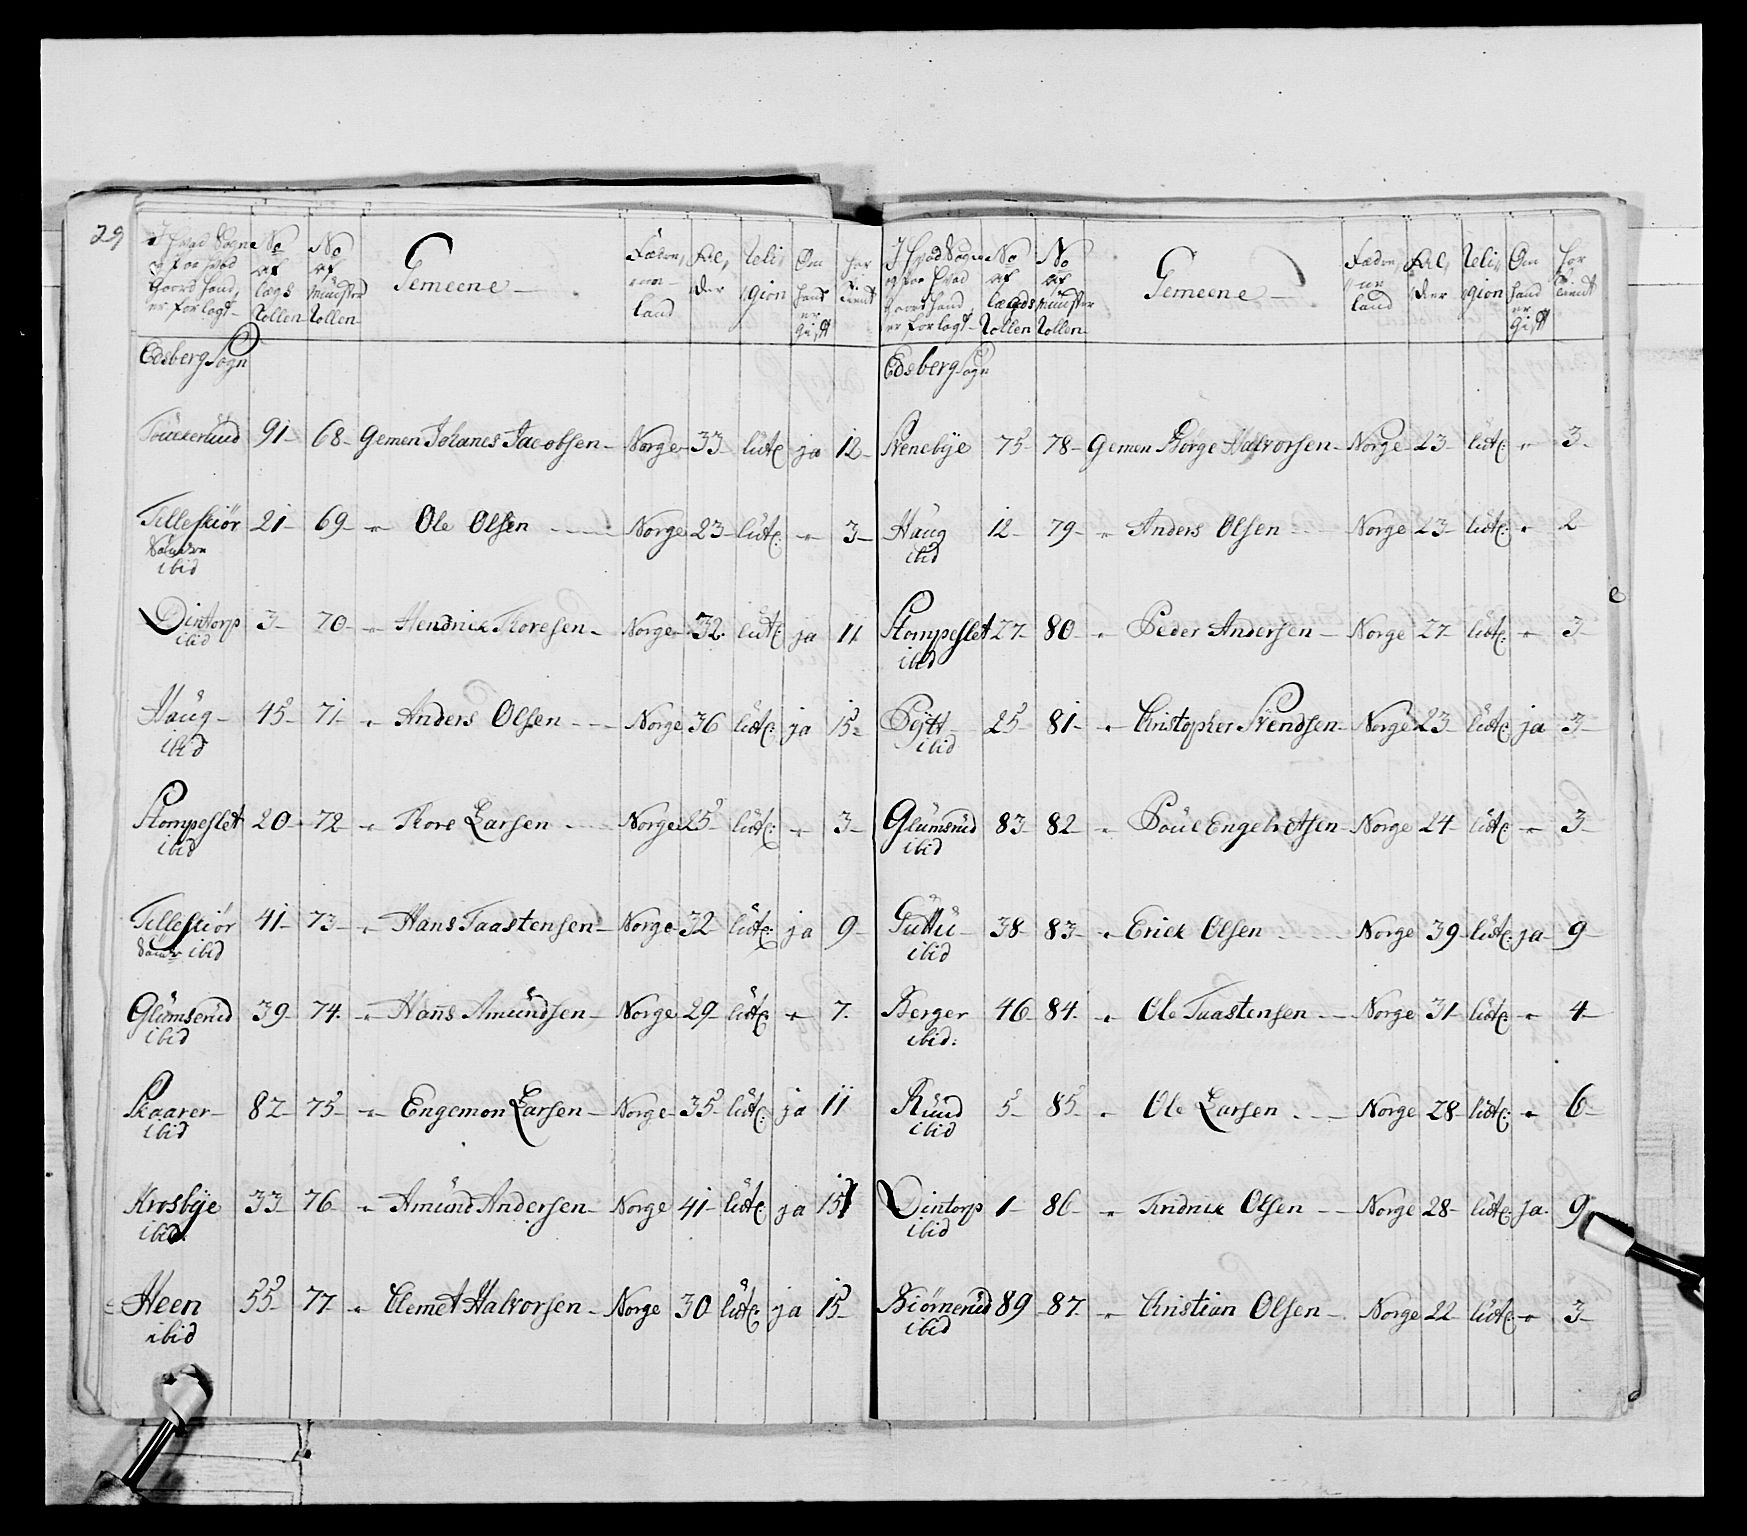 29
I hvad Sogn og paa hvad Gaard hand er forlagt No af lægs Rollen No af Münster Rollen Gemeene Fædrene land Alder Religion Om hand er Gift har tient
Edsberg Sogn
91 68 Gemen Johanes Jacobsen Norge 33 lüt: ja 12
Tilleskiör Söndre ibid 21 69 " Ole Olsen Norge 23 lüt: " 3
Dintorp ibid 3 70 " Hendrick Thoresen Norge 32 lüt: ja 11
Haug ibid 45 71 " Anders Olsen Norge 36 lüt: ja 15
Stompeslet ibid 20 72 " Thore Larsen Norge 25 lüt: " 3
Tilleskiör ibid 41 73 " Hans Taastensen Norge 32 lüt: ja 9
Glümserüd ibid 39 74 " Hans Amündsen Norge 29 lüt: " 7
Skaarer ibid 82 75 " Engemon Larsen Norge 35 lüt: ja 11
Krosbye ibid 33 76 " Amünd Andersen Norge 41 lüt: ja 15
Heen ibid 55 77 " Clemet Halvorsen Norge 30 lüt: ja 15
I hvad Sogn og paa hvad Gaard hand er forlagt No af lægds Rollen No af Münster Rollen Gemeene Fædrene land Alder Religion Om hand er Gift har tient
Edsberg Sogn
Svenebye 75 78 Gemen Börge Halvorsen Norge 23 lüt: " 3
Haug ibid 12 79 " Anders Olsen Norge 23 lüt: " 2
Stompeslet ibid 27 80 " Peder Andersen Norge 27 lüt: " 3
ibid 25 81 " Christopher Svendsen Norge 23 lüt: ja 3
Glümsrüd ibid 83 82 " Poül Engebretsen Norge 24 lüt: " 3
ibid 38 83 " Erick Olsen Norge 39 lüt: ja 9
Berger ibid: 46 84 " Ole Taastensen Norge 31 lüt: " 4
Rüüd ibid 5 85 " Ole Larsen Norge 28 lüt: " 6
Dintorp ibid 1 86 " Fridrick Olsen Norge 28 lüt: ja 9
Biörnerüd ibid 89 87 " Christian Olsen Norge 22 lüt: " 3